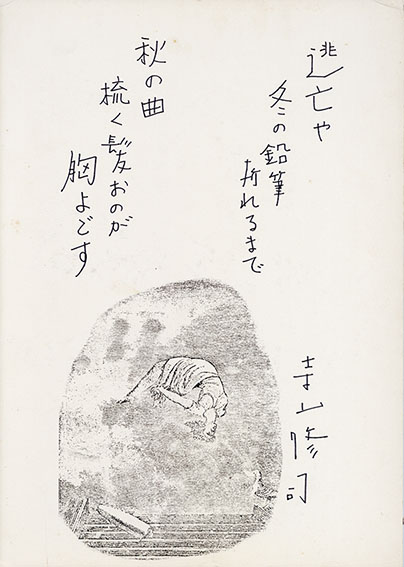 逃亡や
冬の鉛筆
折れるまで
秋の曲
梳く髪おのが
胸よごす
寺山修司